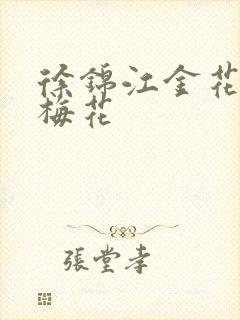 徐錦江金花
梅花
張堂孝